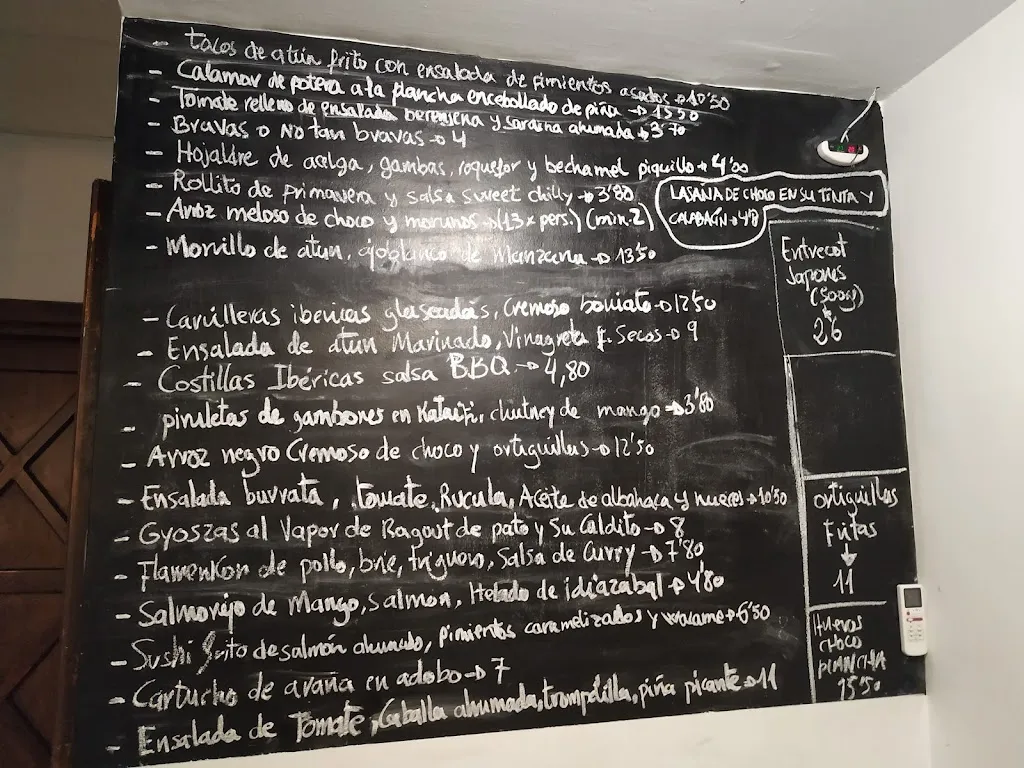 - Tacos de atún frito con ensalada de pimientos asados → 10'50
- Calamar de potera a la plancha encebollado de piña → 15'50
- Tomate relleno de ensalada berenjena y sardina ahumada → 3'70
- Bravas o no tan bravas → 4
- Hojaldre de acelga, gambas, roquefor y bechamel piquillo → 4'00
- Rollito de primavera y salsa sweet chilly → 3'80
- Arroz meloso de choco y morunos → (13 x pers.) (min. 2)
- Morrillo de atún, ajoblanco de Manzana → 13'50
LASAÑA DE CHOCO EN SU TINTA Y
CALABACÍN → 4'8
- Carrilleras ibéricas glaseadas, Cremoso boniato → 12'50
- Ensalada de atún Marinado, Vinagreta f. Secos → 9
- Costillas Ibéricas salsa BBQ → 4,80
- piruletas de gambones en Kataifi, chutney de mango → 3'80
- Arroz negro Cremoso de choco y ortiguillas → 12'50
- Ensalada burrata, tomate, Rucula, Aceite de albahaca y nueces → 10'50
- Gyoszas al Vapor de Ragout de pato y Su Caldito → 8
- Flamenkon de pollo, brie, triguero, Salsa de Curry → 7'80
- Salmorejo de Mango, Salmon, Helado de idiazabal → 4'80
- Sushi frito de salmón ahumado, pimientos caramelizados y wacame → 6'50
- Cartucho de araña en adobo → 7
- Ensalada de Tomate, Caballa ahumada, trompetilla, piña picante → 11
Entrecot
Japones
(500g)
26
ortiguillas
Fritas
11
HUEVOS
CHOCO
PLANCHA
15'50